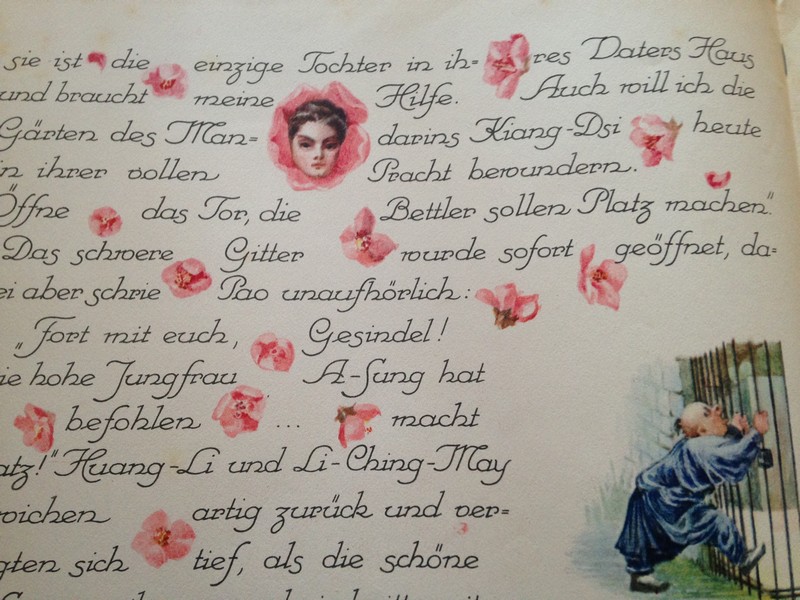 sie ist die einzige Tochter in ih=res Vaters Haus
und braucht meine Hilfe. Auch will ich die
Gärten des Man=darins Kiang-Dsi heute
in ihrer vollen Pracht bewundern.
Öffne das Tor, die Bettler sollen Platz machen."
Das schwere Gitter wurde sofort geöffnet, da=
ei aber schrie Pao unaufhörlich:
„Fort mit euch, Gesindel!
ie hohe Jungfrau A-Sung hat
befohlen ... macht
atz!" Huang-Li und Li-Ching-May
wichen artig zurück und ver=
gten sich tief, als die schöne